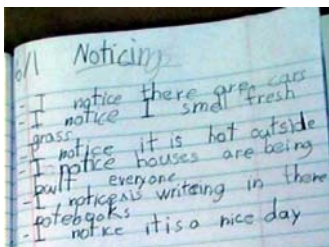 6/1 Noticing
- I notice there are cars
- I notice I smell fresh
grass
- I notice it is hot outside
- I notice houses are being
built
- I notice everyone is writeing in there
notebooks
- I notice it is a nice day